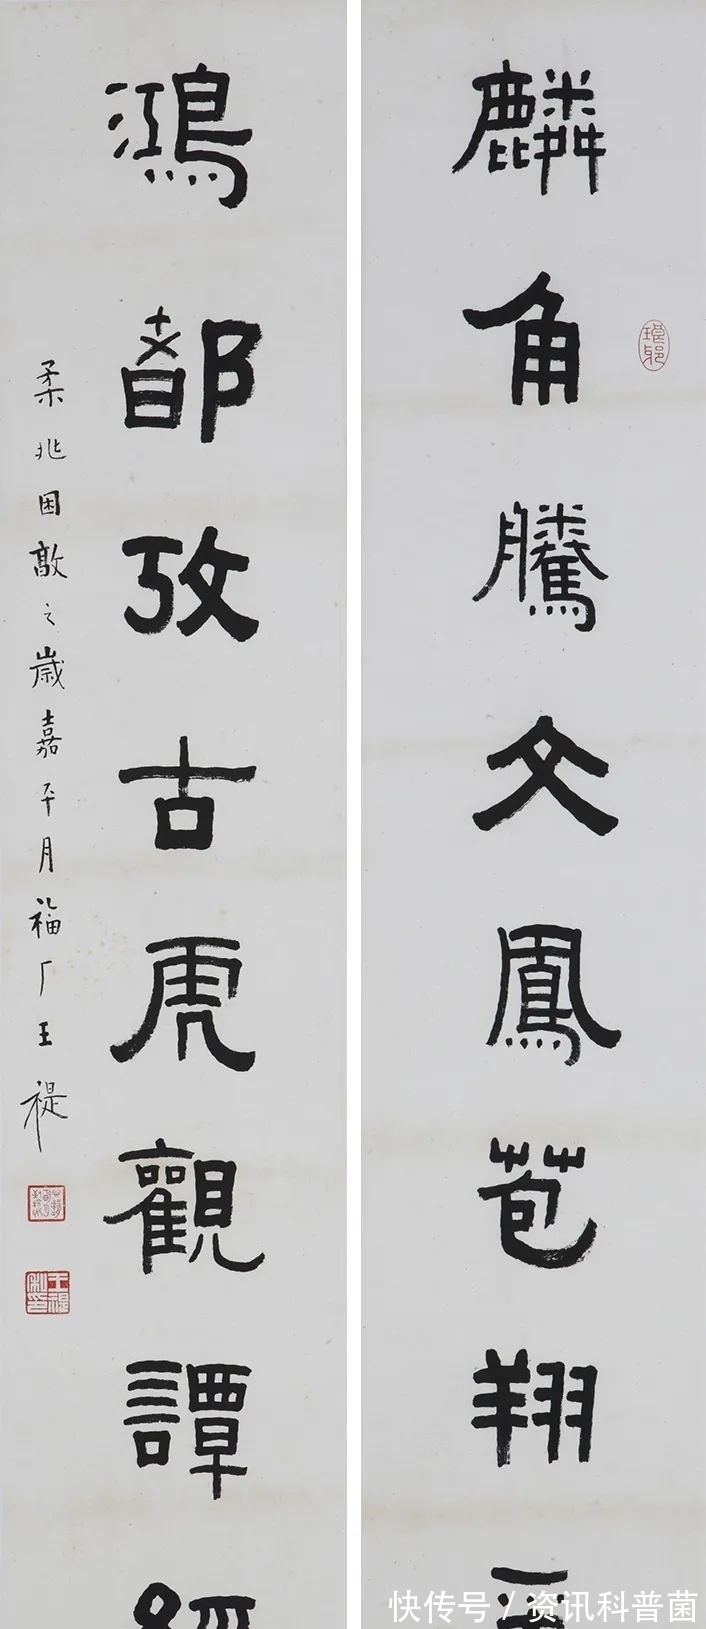 麟角騰文鳳苞翔
琅邪
鴻都攷古虎觀譚經
柔兆困敦之歲嘉平月福厂王禔
王禔私印
快传号 / 资讯科普菌